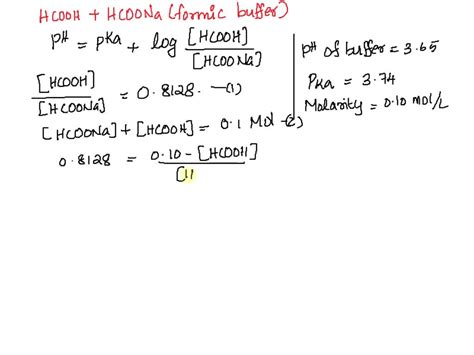 HCOOH + HCOONa (formic buffer)
pH = pKa + log [HCOOH] / [HCOONa]
[HCOOH] / [HCOONa] = 0.8128 - (1)
[HCOONa] + [HCOOH] = 0.1 Mol -(2)
0.8128 = 0.10 - [HCOOH] / [H
pH of buffer = 3.65
PKa = 3.74
Molarity = 0.10 mol/L